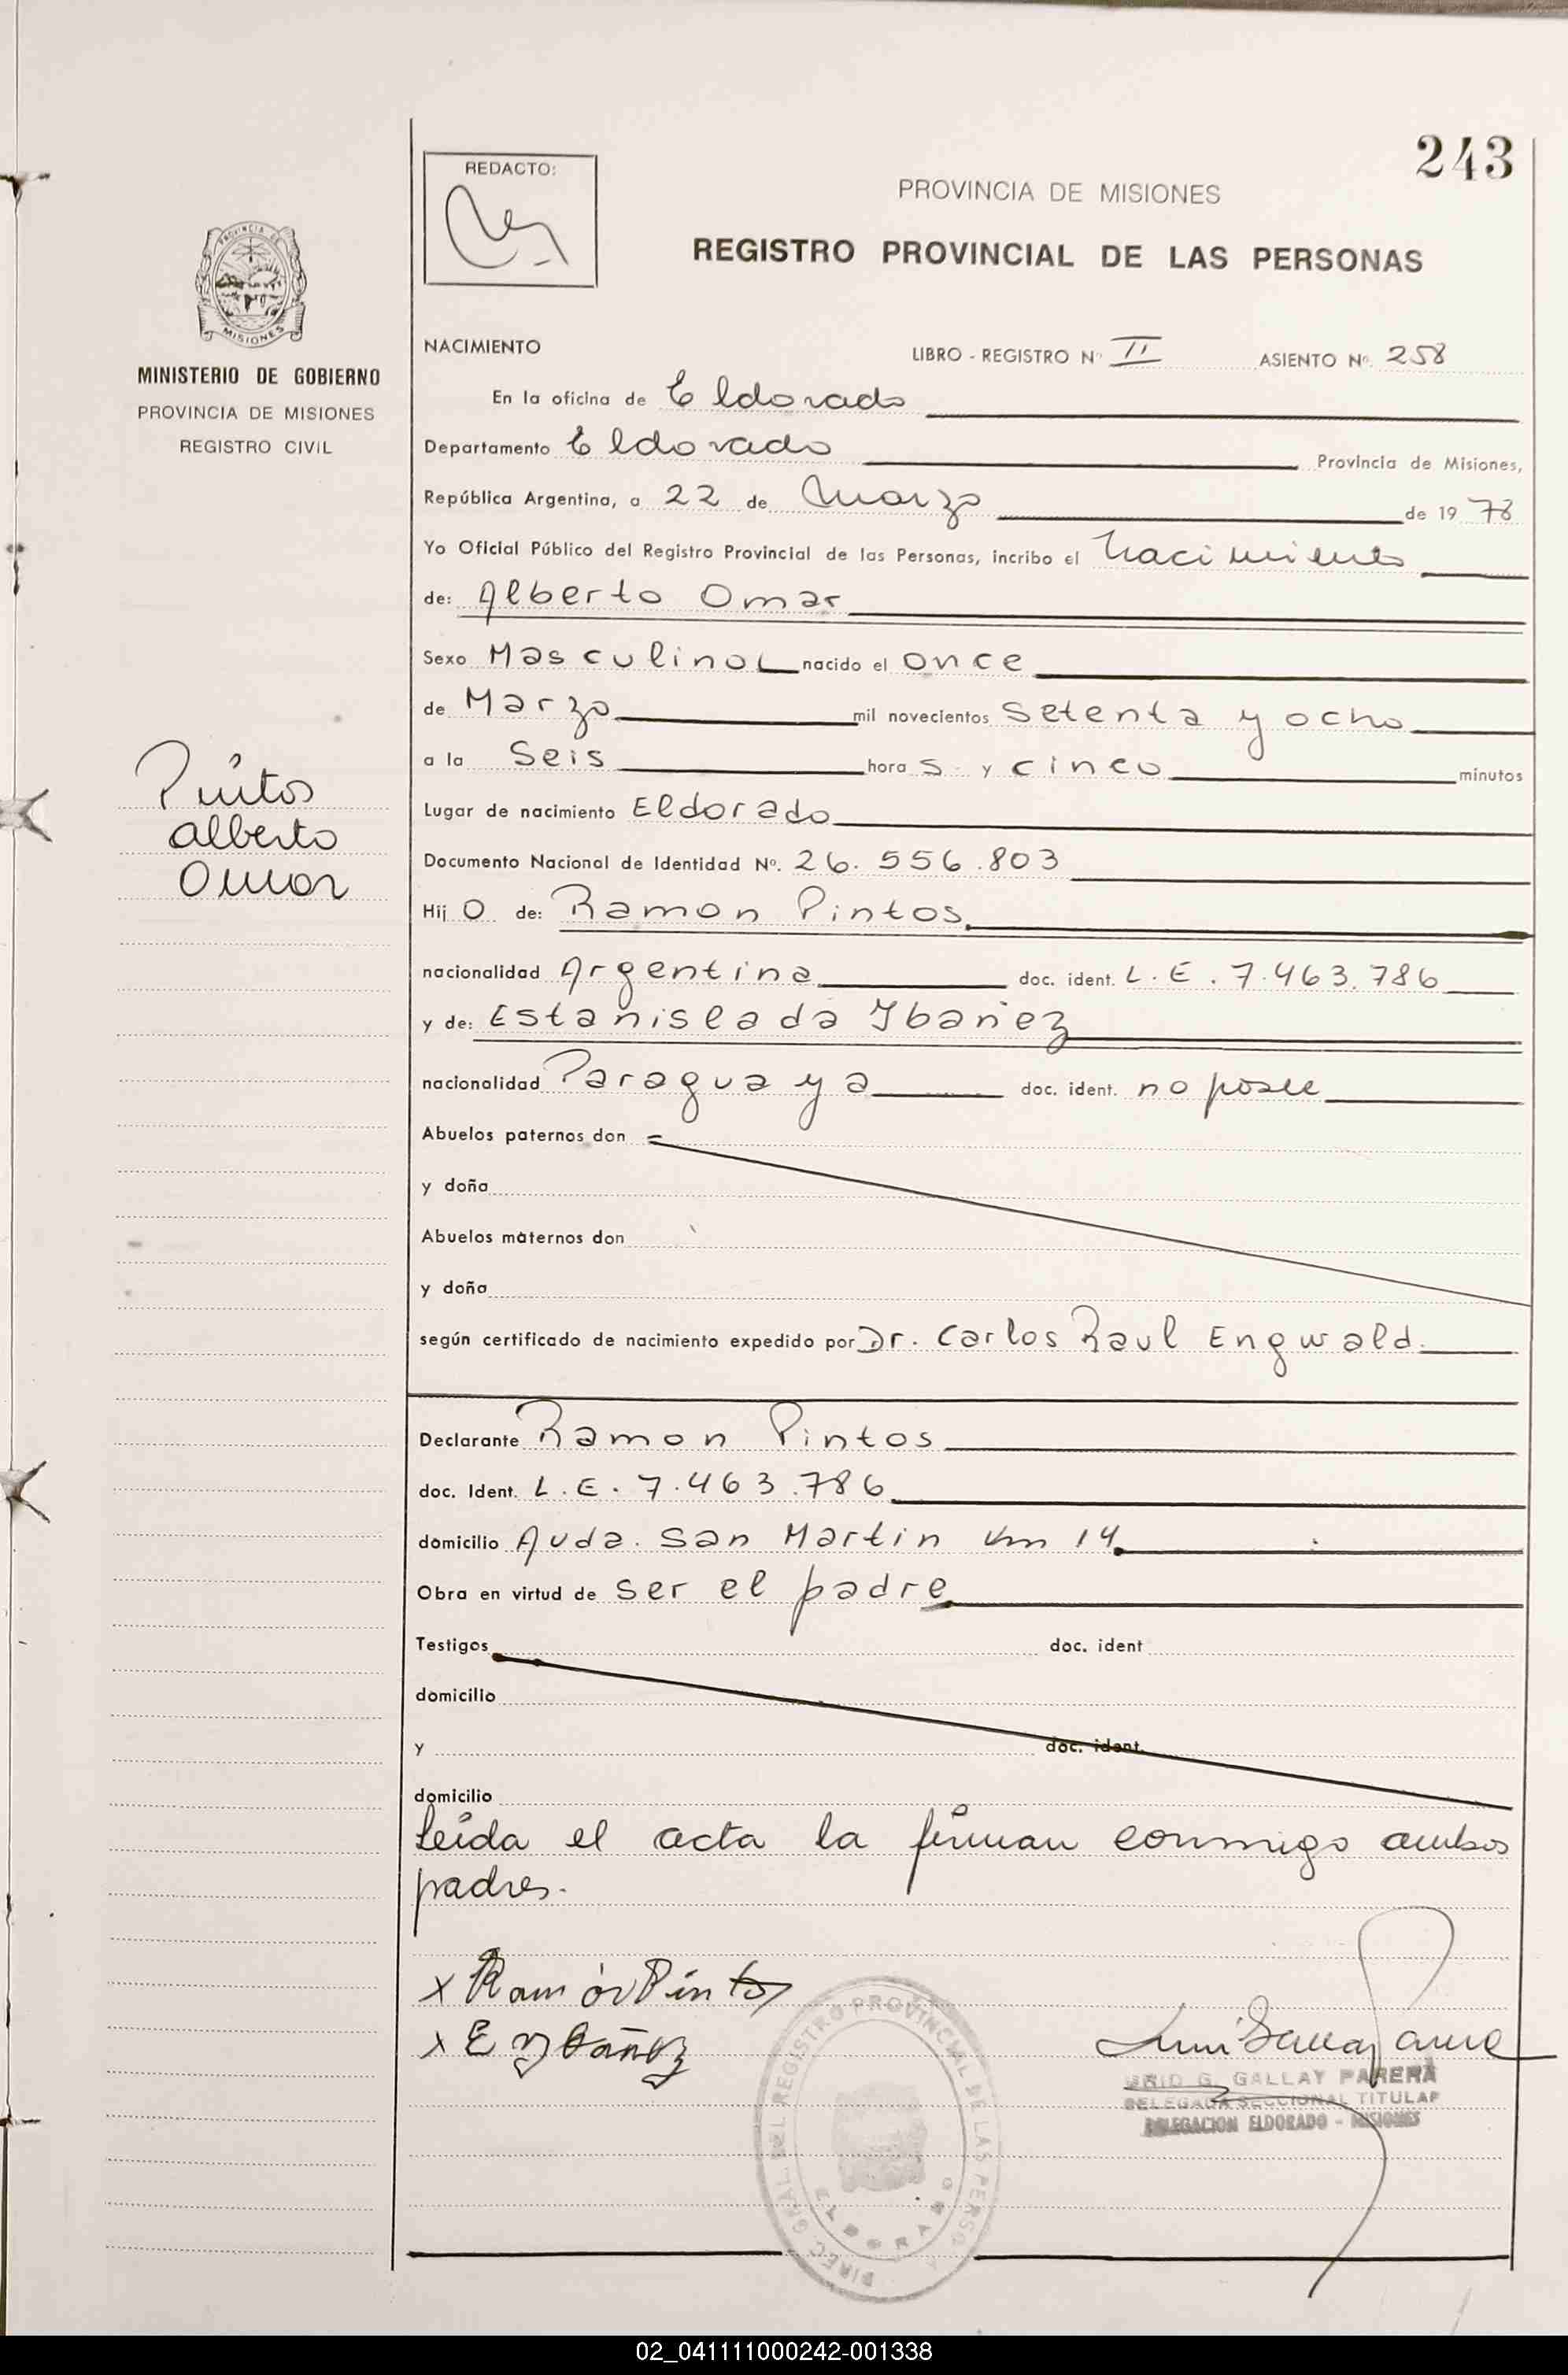 243
REDACTO:
PROVINCIA DE MISIONES
REGISTRO PROVINCIAL DE LAS PERSONAS
PROVINCIA DE
MISIONES
MINISTERIO DE GOBIERNO
PROVINCIA DE MISIONES
REGISTRO CIVIL
NACIMIENTO
LIBRO - REGISTRO Nº II ASIENTO Nº. 258
En la oficina de Eldorado
Departamento Eldorado Provincia de Misiones,
República Argentina, a 22 de Marzo de 19 78
Yo Oficial Público del Registro Provincial de las Personas, incribo el nacimiento
de: Alberto Omar
Sexo Masculino nacido el once
de Marzo mil novecientos setenta y ocho
a la Seis hora s y cinco minutos
Lugar de nacimiento Eldorado
Documento Nacional de Identidad Nº. 26.556.803
Hij o de: Ramon Pintos
nacionalidad Argentina doc. ident. L.E. 7.463.786
y de: Estanislada Ybañez
nacionalidad Paraguaya doc. ident. no posee
Abuelos paternos don
y doña
Abuelos maternos don
y doña
según certificado de nacimiento expedido por Dr. Carlos Raul Engwald.
Declarante Ramon Pintos
doc. Ident. L.E. 7.463.786
domicilio Avda. San Martin km 14
Obra en virtud de ser el padre
Testigos doc. ident
domicilio
y doc. ident.
domicilio
leída el acta la firman conmigo ambos
padres.-
Pintos
Alberto
Omar
x Ramón Pintos
x E Ybañez
G. GALLAY PARERA
DELEGADA SECCIONAL TITULAR
DELEGACION ELDORADO - MISIONES
DIREC. GRAL. DEL REGISTRO PROVINCIAL DE LAS PERSO
ELDORADO
02_041111000242-001338